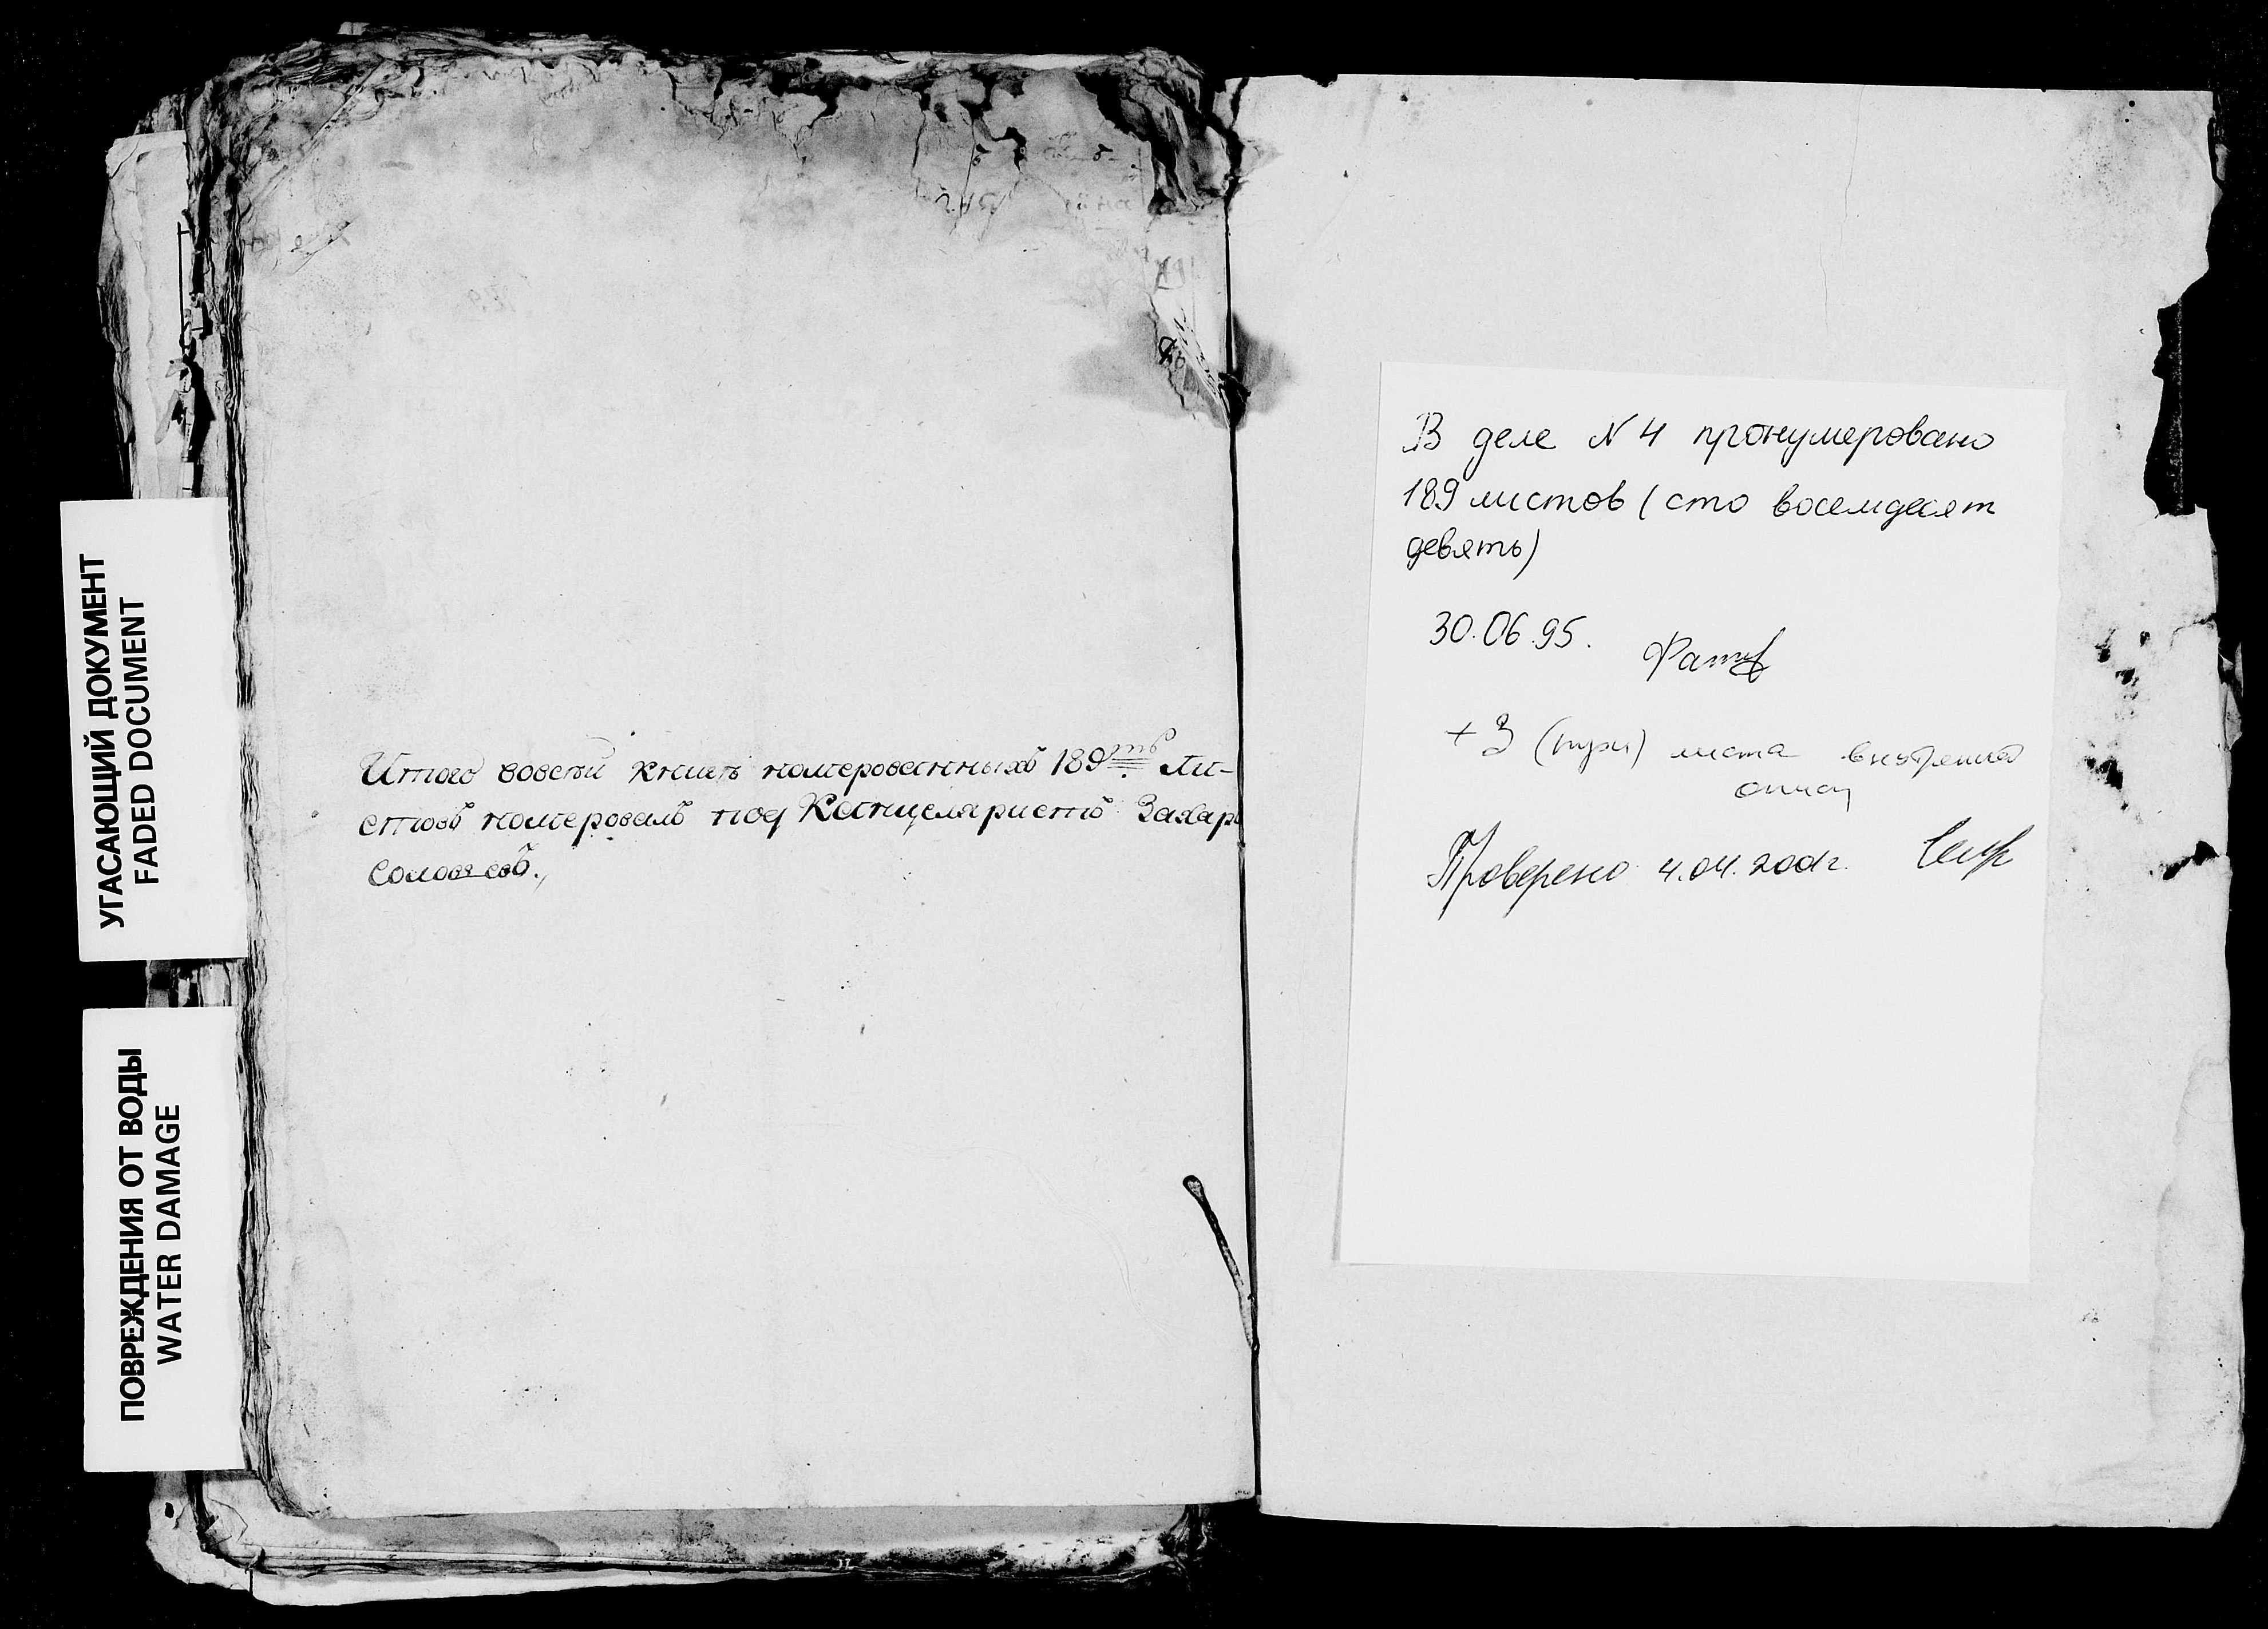 УГАСАЮЩИЙ ДОКУМЕНТ
FADED DOCUMENT
ПОВРЕЖДЕНИЯ ОТ ВОДЫ
WATER DAMAGE
Итого вовсей книге номерованныхъ 189ть ли-
стовъ номеровалъ под Канцеляристъ Захаръ
Соловьевъ.
В деле N 4 пронумеровано
189 листов (сто восемдесят
девять)
30.06.95.
+ 3 (три) листа внутренней
описи
Проверено 4.04.2001г.